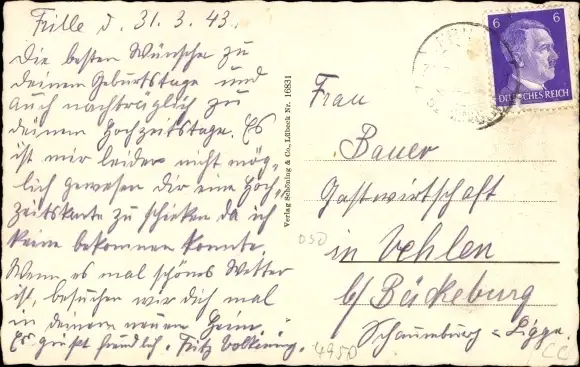 Frille d. 31.3.43.
Die besten Wünsche zu
deinem Geburtstage und
auch nachträglich zu
deinem Hochzeitstage. Es
ist mir leider nicht mög-
lich gewesen dir eine Hoch-
zeitskarte zu schicken da ich
keine bekommen konnte.
Wenn es mal schönes Wetter
ist, besuchen wir dich mal
in deinem neuen Heim.
Es grüßt freundlich. Fritz Volkening.
Verlag Schöning & Co., Lübeck Nr. 16831
6 6
DEUTSCHES REICH
Frau
Bauer
Gastwirtschaft
in Vehlen
b/ Bückeburg
Schaumburg = Lippe.
050
4950
CC